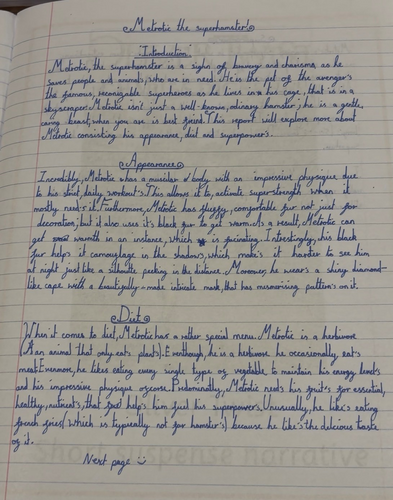 Metrotic the superhamster!
Introduction
Metrotic, the superhamster is a sighn of bravery and charisma, as he
saves people and animals, who are in need. He is the pet of the avengers
the famous, recongizable superheroes as he lives in his cage, that is in a
skyscraper. Metrotic isn't just a well-known, odinary hamster; he is a gentle,
caring beast, when you are is best friend. This report will explore more about
Metrotic consisting his appearance, diet and superpowers.
Appearance
Incredibly, Metrotic whas a muscular body with an impressive physique due
to his strict, daily workout's. This allows it to, activate super-strength when it
mostly need's it. Furthermore, Metrotic has fluffy, comfortable fur not just for
decoration; but it also uses it's black fur to get warm. As a result, Metrotic can
get warmth in an instance, which is facinating. Interestingly, his black
fur helps it camouflage in the shadows, which make's it harder to see him
at night just like a silhoutte peeking in the distance. Moreover, he wears a shiny diamond-
like cape with a beautifully-made intricate mask, that has mesmorising pattern's on it.
Diet
When it comes to diet, Metrotic has a rather special menu. Metrotic is a herbivore
(An animal that only eat's plants). Eventhough, he is a herbivore he occasionally eat's
meat. Evermore, he likes eating every single type of vegetable to maintain his energy levels
and his impressive physique ofcorse. Predominatly, Metrotic needs his fruit's for essential,
healthy, nutricent's, that helps him fuel his superpowers. Unusually, he like's eating
french fries (which is typically not for hamster's) because he like's the delicous taste
of it.
Next page :)